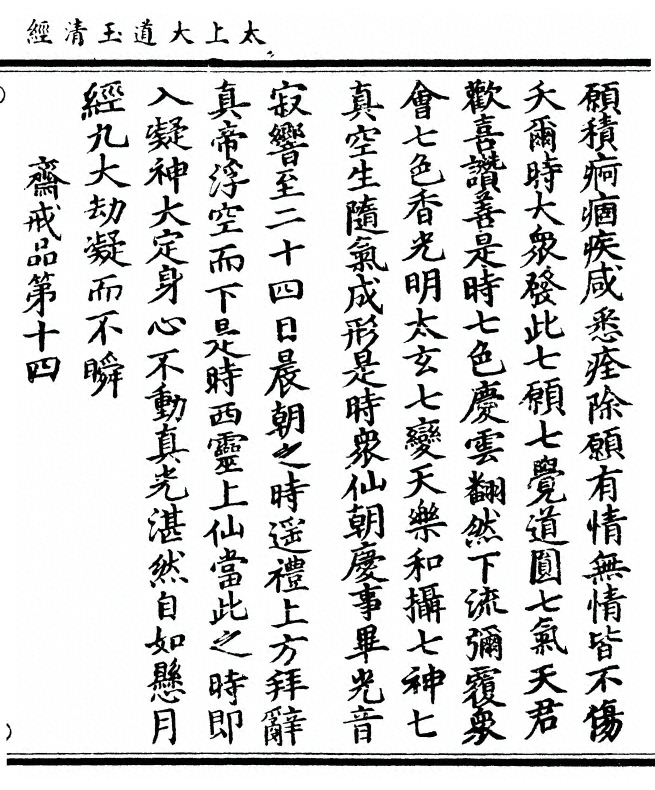 太上大道玉清經
願積痾痼疾咸悉痊除願有情無情皆不傷
夭爾時大衆發此七願七覺道圓七氣天君
歡喜讚善是時七色慶雲翻然下流彌覆衆
會七色香光明太玄七變天樂和攝七神七
真空生隨氣成形是時衆仙朝慶事畢光音
寂響至二十四日晨朝之時遥禮上方拜辭
真帝浮空而下是時西靈上仙當此之時即
入凝神大定身心不動真光湛然自如懸月
經九大劫凝而不瞬
齋戒品第十四